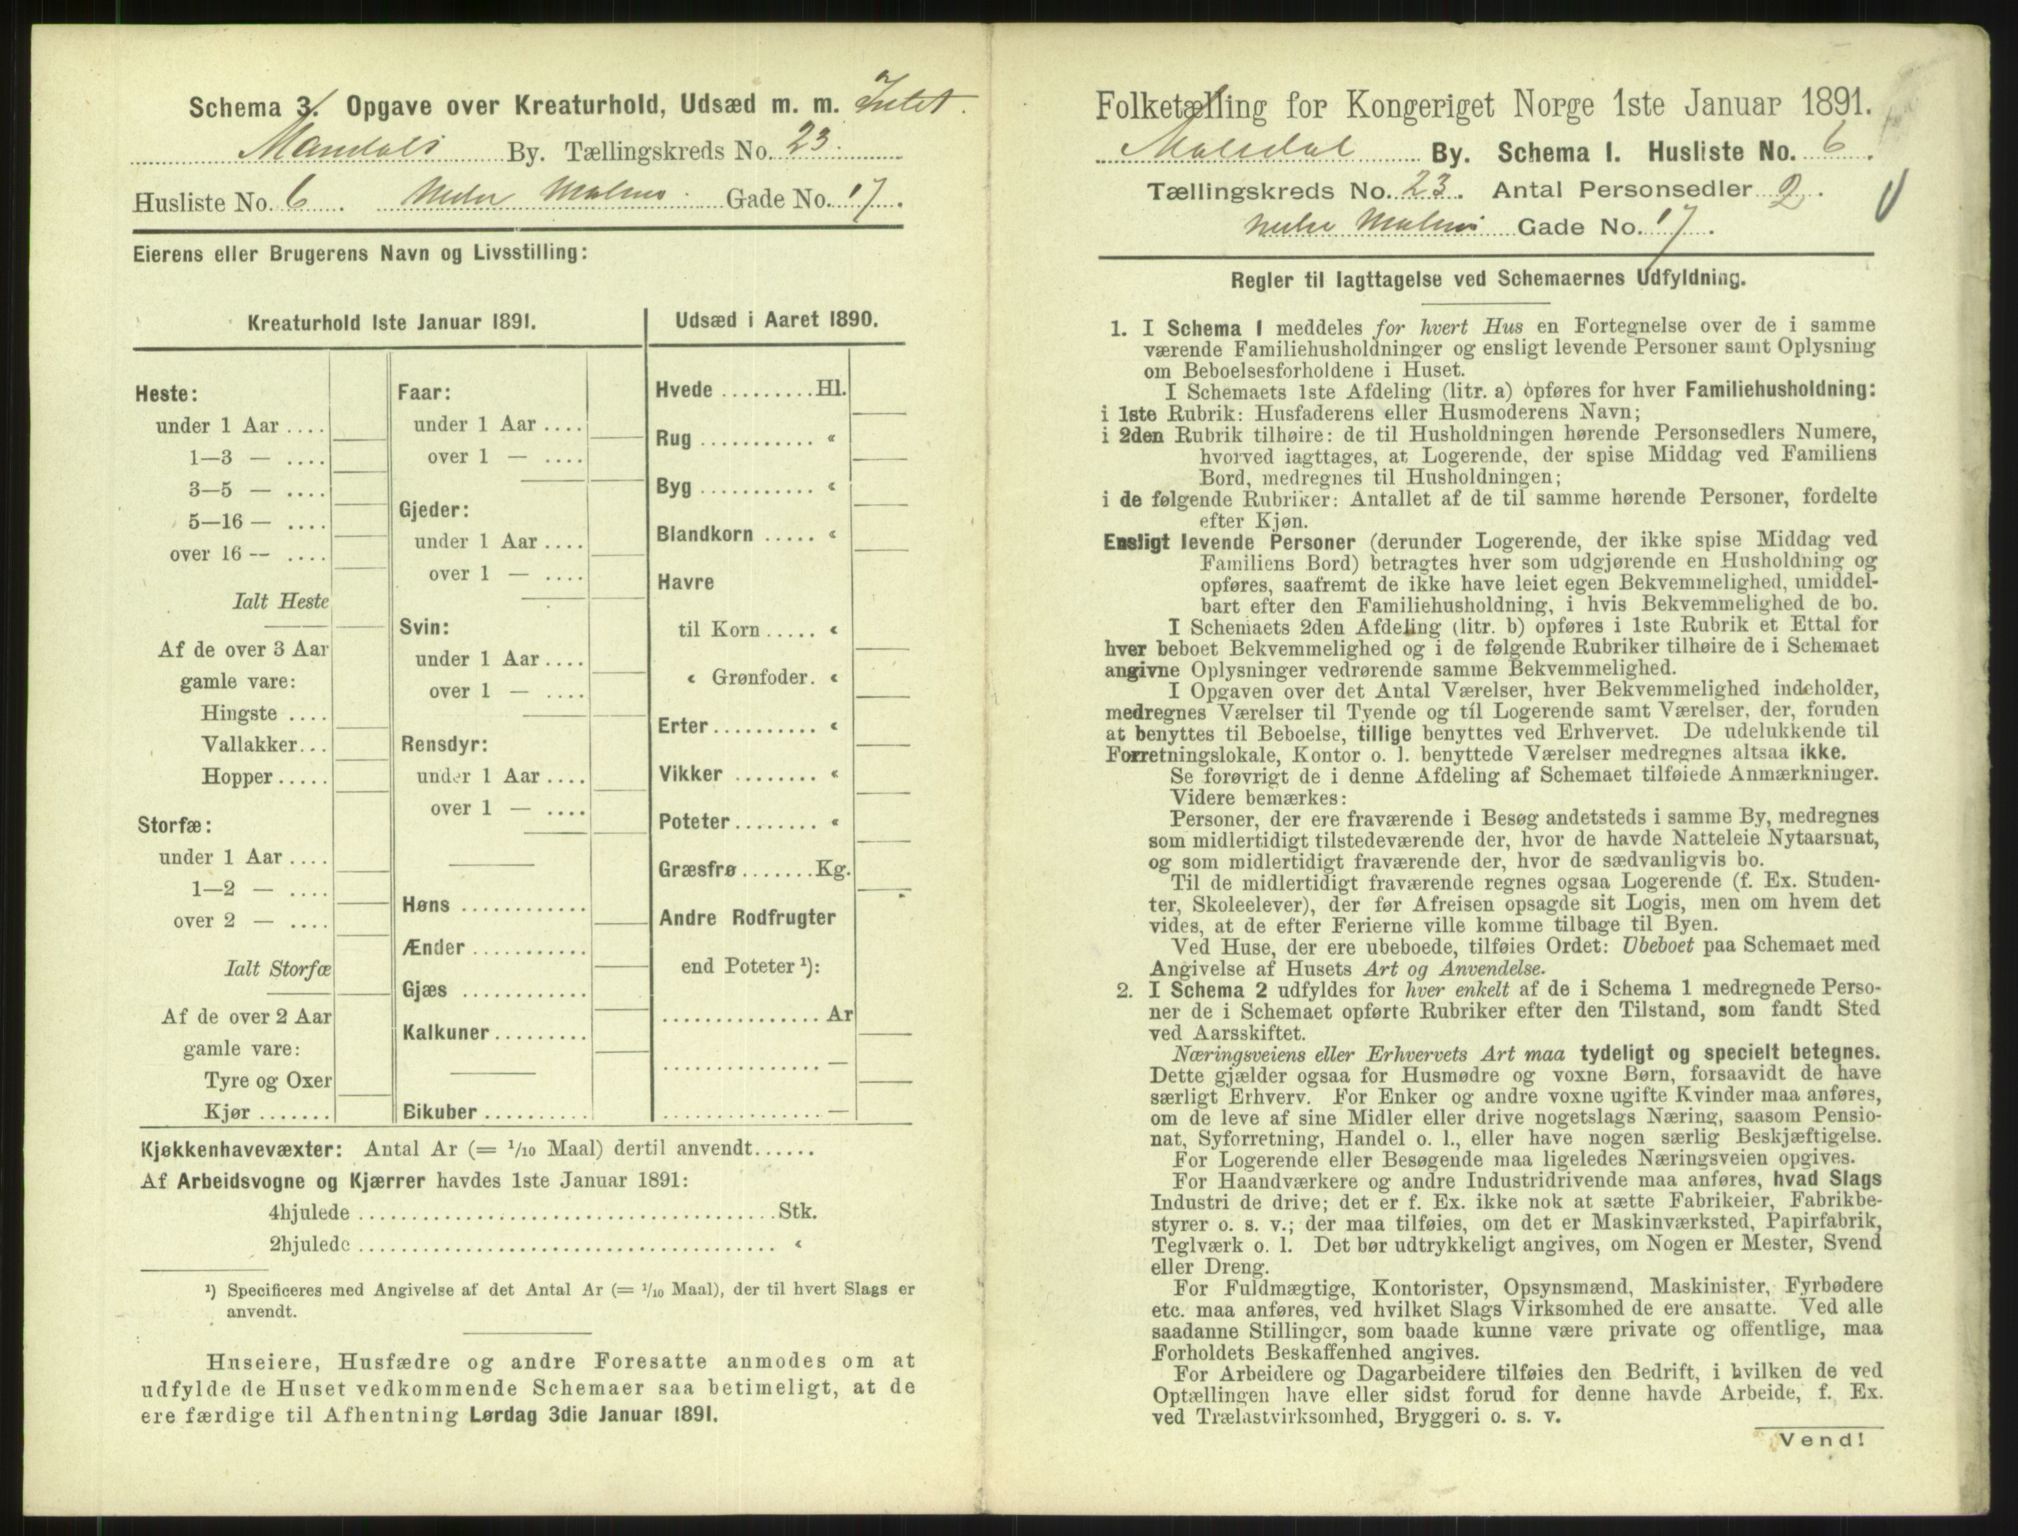 Schema 3. Opgave over Kreaturhold, Udsæd m. m. Intet.
Mandals By. Tællingskreds No. 23.
Husliste No. 6. Nedre Malmø Gade No. 17.
Eierens eller Brugerens Navn og Livsstilling:
Kreaturhold 1ste Januar 1891.
Heste:
under 1 Aar ....
1—3 — ....
3—5 — ....
5—16 — ....
over 16 — ....
Ialt Heste
Af de over 3 Aar
gamle vare:
Hingste ....
Vallakker...
Hopper ....
Storfæ:
under 1 Aar ....
1—2 — ....
over 2 — ....
Ialt Storfæ
Af de over 2 Aar
gamle vare:
Tyre og Oxer
Kjør .......
Faar:
under 1 Aar ....
over 1 — ....
Gjeder:
under 1 Aar ....
over 1 — ....
Svin:
under 1 Aar ....
over 1 — ....
Rensdyr:
under 1 Aar ....
over 1 — ....
Høns ............
Ænder ...........
Gjæs ............
Kalkuner.........
Bikuber ..........
Udsæd i Aaret 1890.
Hvede .........Hl.
Rug ........... «
Byg ........... «
Blandkorn ..... «
Havre
til Korn ..... «
« Grønfoder. «
Erter .......... «
Vikker ........ «
Poteter ........ «
Græsfrø .......Kg.
Andre Rodfrugter
end Poteter ¹):
............... Ar
............... —
............... —
Kjøkkenhavevæxter: Antal Ar (= 1/10 Maal) dertil anvendt......
Af Arbeidsvogne og Kjærrer havdes 1ste Januar 1891:
4hjulede ........................................ Stk.
2hjulede ........................................ «
¹) Specificeres med Angivelse af det Antal Ar (= 1/10 Maal), der til hvert Slags er
anvendt.
Huseiere, Husfædre og andre Foresatte anmodes om at
udfylde de Huset vedkommende Schemaer saa betimeligt, at de
ere færdige til Afhentning Lørdag 3die Januar 1891.
Folketælling for Kongeriget Norge 1ste Januar 1891.
By. Schema 1. Husliste No. 6.
Tællingskreds No. 23. Antal Personsedler 2.
Nedre Malmø Gade No. 17.
Regler til Iagttagelse ved Schemaernes Udfyldning.
1. I Schema 1 meddeles for hvert Hus en Fortegnelse over de i samme
værende Familiehusholdninger og ensligt levende Personer samt Oplysning
om Beboelsesforholdene i Huset.
I Schemaets 1ste Afdeling (litr. a) opføres for hver Familiehusholdning:
i 1ste Rubrik: Husfaderens eller Husmoderens Navn;
i 2den Rubrik tilhøire: de til Husholdningen hørende Personsedlers Numere,
hvorved iagttages, at Logerende, der spise Middag ved Familiens
Bord, medregnes til Husholdningen;
i de følgende Rubriker: Antallet af de til samme hørende Personer, fordelte
efter Kjøn.
Ensligt levende Personer (derunder Logerende, der ikke spise Middag ved
Familiens Bord) betragtes hver som udgjørende en Husholdning og
opføres, saafremt de ikke have leiet egen Bekvemmelighed, umiddel-
bart efter den Familiehusholdning, i hvis Bekvemmelighed de bo.
I Schemaets 2den Afdeling (litr. b) opføres i 1ste Rubrik et Ettal for
hver beboet Bekvemmelighed og i de følgende Rubriker tilhøire de i Schemaet
angivne Oplysninger vedrørende samme Bekvemmelighed.
I Opgaven over det Antal Værelser, hver Bekvemmelighed indeholder,
medregnes Værelser til Tyende og til Logerende samt Værelser, der, foruden
at benyttes til Beboelse, tillige benyttes ved Erhvervet. De udelukkende til
Forretningslokale, Kontor o. l. benyttede Værelser medregnes altsaa ikke.
Se forøvrigt de i denne Afdeling af Schemaet tilføiede Anmærkninger.
Videre bemærkes:
Personer, der ere fraværende i Besøg andetsteds i samme By, medregnes
som midlertidigt tilstedeværende der, hvor de havde Natteleie Nytaarsnat,
og som midlertidigt fraværende der, hvor de sædvanligvis bo.
Til de midlertidigt fraværende regnes ogsaa Logerende (f. Ex. Studen-
ter, Skoleelever), der før Afreisen opsagde sit Logis, men om hvem det
vides, at de efter Ferierne ville komme tilbage til Byen.
Ved Huse, der ere ubeboede, tilføies Ordet: Ubeboet paa Schemaet med
Angivelse af Husets Art og Anvendelse.
2. I Schema 2 udfyldes for hver enkelt af de i Schema 1 medregnede Perso-
ner de i Schemaet opførte Rubriker efter den Tilstand, som fandt Sted
ved Aarsskiftet.
Næringsveiens eller Erhvervets Art maa tydeligt og specielt betegnes.
Dette gjælder ogsaa for Husmødre og voxne Børn, forsaavidt de have
særligt Erhverv. For Enker og andre voxne ugifte Kvinder maa anføres,
om de leve af sine Midler eller drive nogetslags Næring, saasom Pensio-
nat, Syforretning, Handel o. l., eller have nogen særlig Beskjæftigelse.
For Logerende eller Besøgende maa ligeledes Næringsveien opgives.
For Haandværkere og andre Industridrivende maa anføres, hvad Slags
Industri de drive; det er f. Ex. ikke nok at sætte Fabrikeier, Fabrikbe-
styrer o. s. v.; der maa tilføies, om det er Maskinværksted, Papirfabrik,
Teglværk o. l. Det bør udtrykkeligt angives, om Nogen er Mester, Svend
eller Dreng.
For Fuldmægtige, Kontorister, Opsynsmænd, Maskinister, Fyrbødere
etc. maa anføres, ved hvilket Slags Virksomhed de ere ansatte. Ved alle
saadanne Stillinger, som baade kunne være private og offentlige, maa
Forholdets Beskaffenhed angives.
For Arbeidere og Dagarbeidere tilføies den Bedrift, i hvilken de ved
Optællingen have eller sidst forud for denne havde Arbeide, f. Ex.
ved Trælastvirksomhed, Bryggeri o. s. v.
Vend!